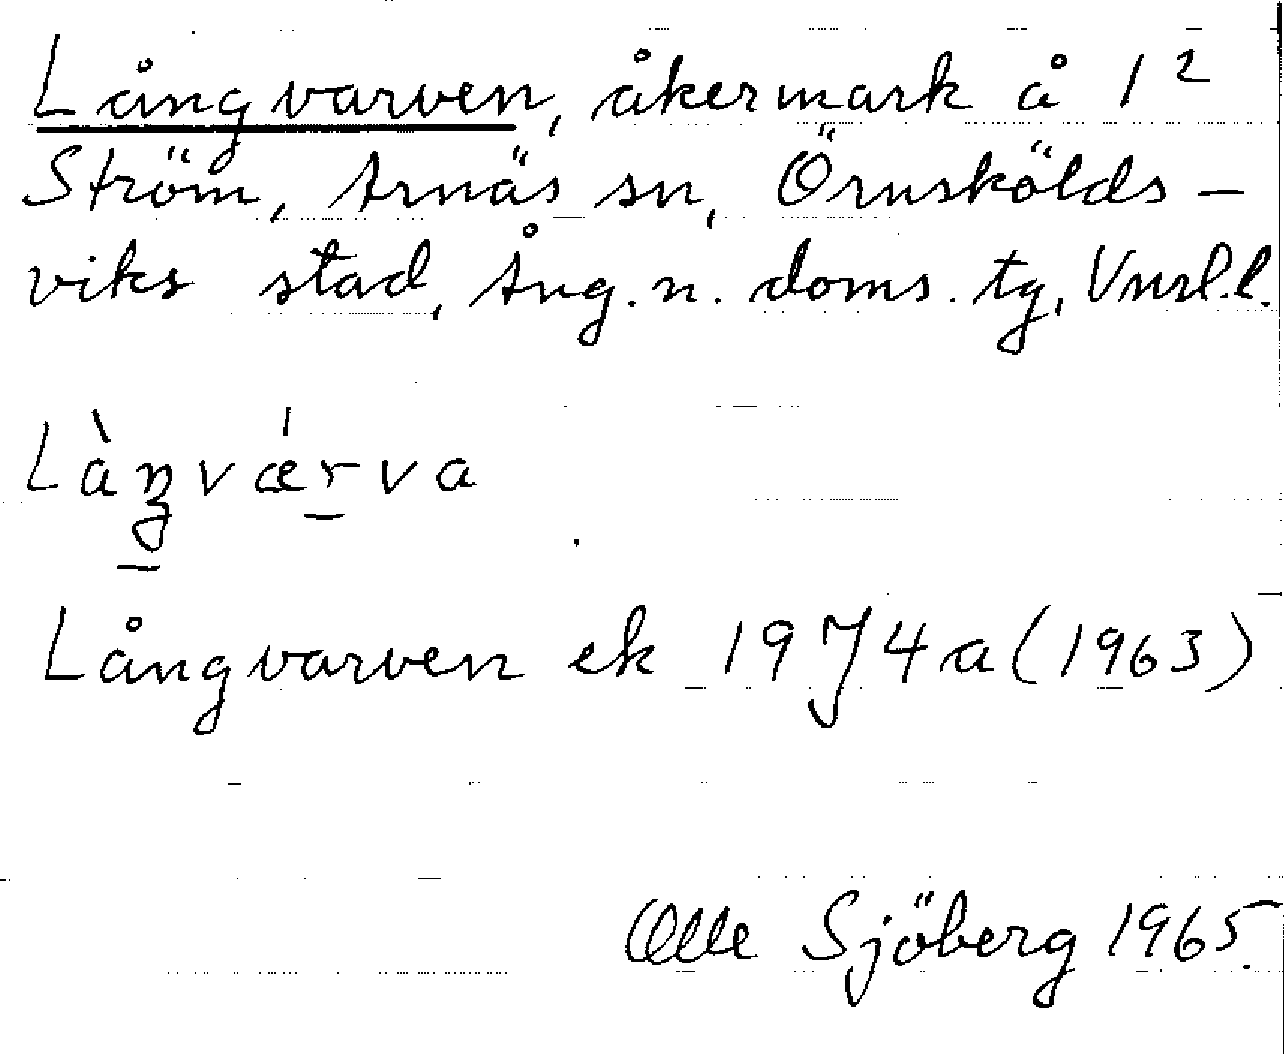 Långvarven, åkermark å 1²
Ström, Arnäs sn, Örnskölds-
viks stad, Ång. n. doms. tg, Vnrl.l.
Làŋværva
Långvarven ek 19 J 4 a (1963)
Olle Sjöberg 1965.